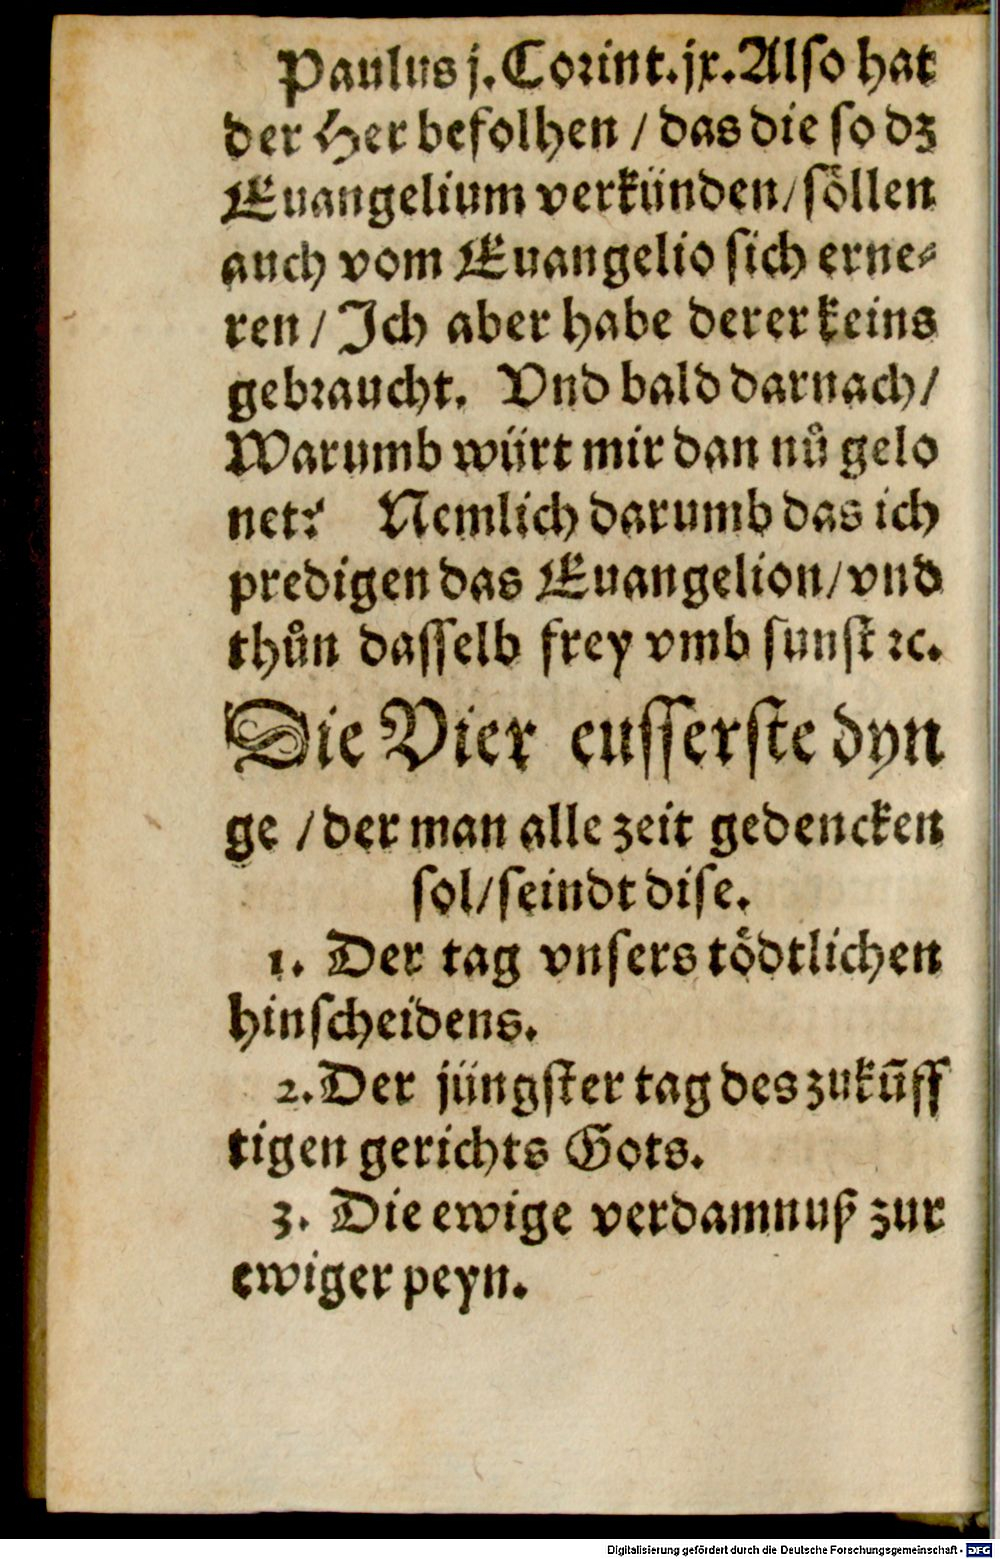 Paulus j. Corint. jx. Also hat
der Her befolhen / das die so dz
Euangelium verkünden / söllen
auch vom Euangelio sich erne⸗
ren / Ich aber habe derer keins
gebraucht. Vnd bald darnach /
Warumb würt mir dan nů gelo
net? Nemlich darumb das ich
predigen das Euangelion / vnd
thůn dasselb frey vmb sunst ꝛc.
Die Vier eusserste dyn
ge / der man alle zeit gedencken
sol / seindt dise.
1. Der tag vnsers tödtlichen
hinscheidens.
2. Der jüngster tag des zukũff
tigen gerichts Gots.
3. Die ewige verdamnuß zur
ewiger peyn.
Digitalisierung gefördert durch die Deutsche Forschungsgemeinschaft - DFG